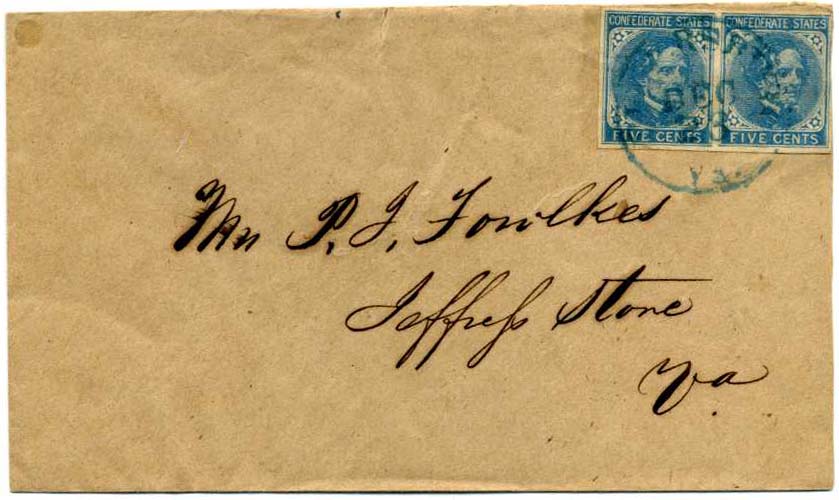 CONFEDERATE STATES CONFEDERATE STATES
DEC
FIVE CENTS FIVE CENTS
VA.
Mr P. J. Fowlkes
Jeffress Store
Va